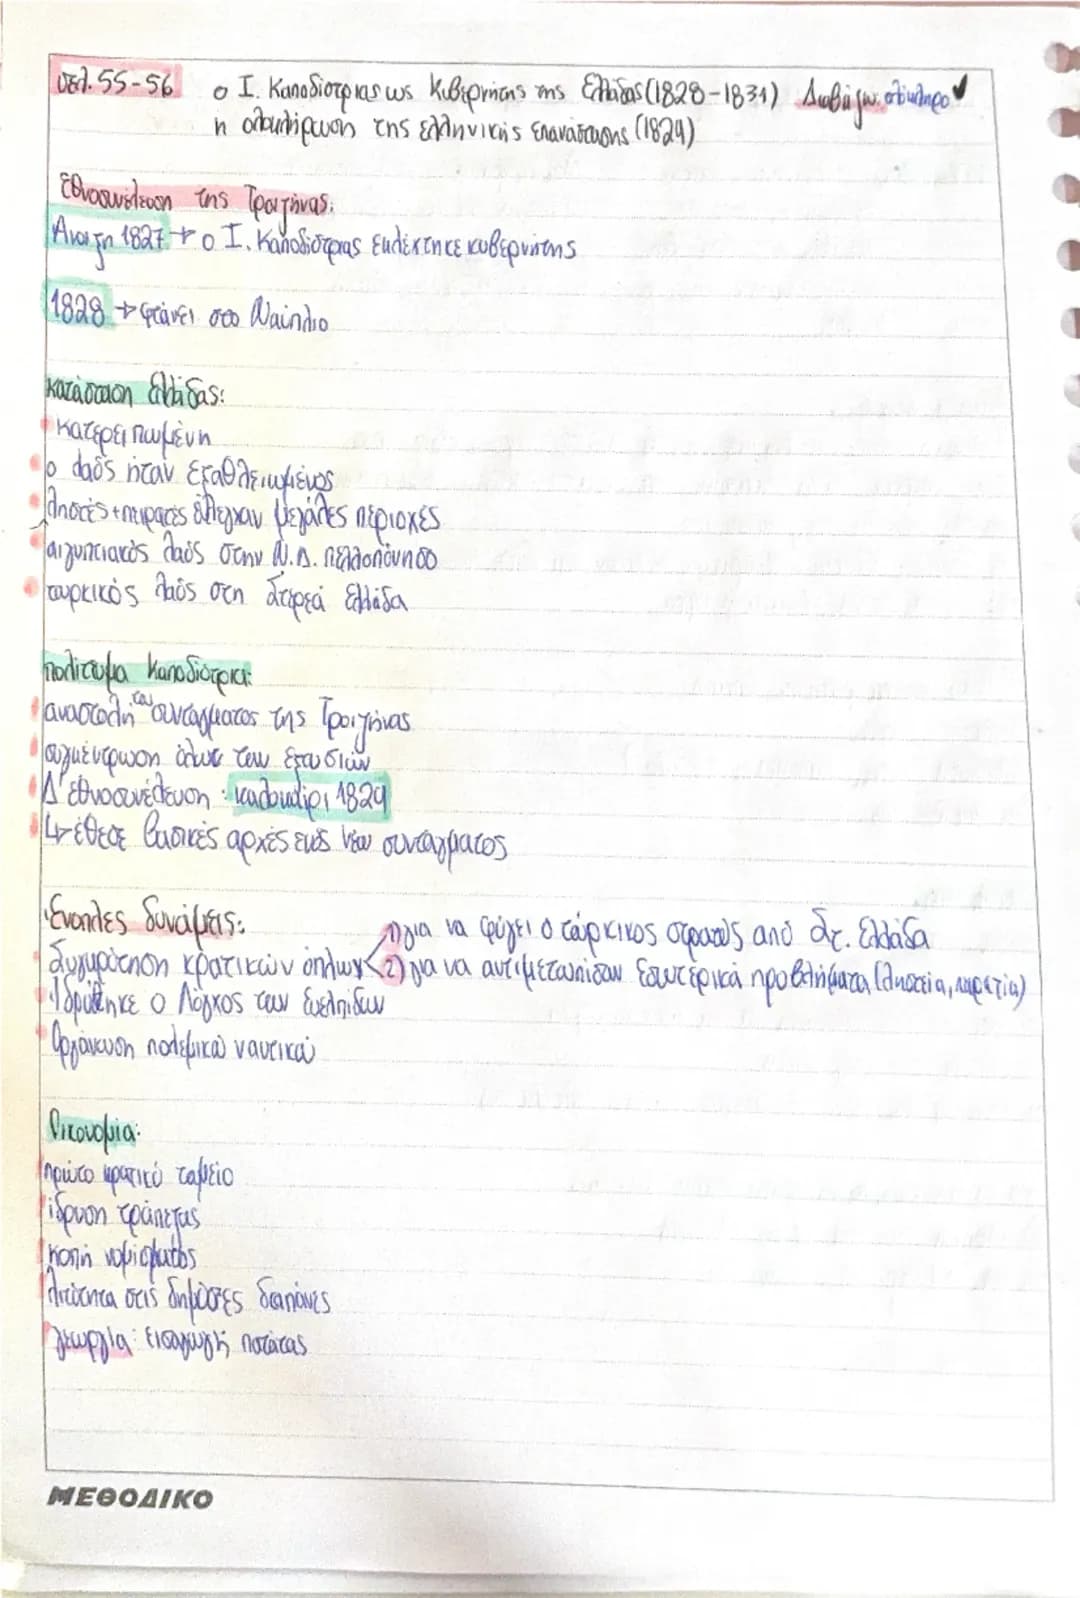 σελ. 55-56
ο Ι. Καποδίστριας ως Κυβερνήτης της Ελλάδας (1828-1831) Διαβάζω ολόκληρο ✓
η ολοκλήρωση της ελληνικής επανάστασης (1829)
Εθνοσυνέλευση της Τροιζήνας:
Άνοιξη 1827 → ο Ι. Καποδίστριας εκλέχτηκε κυβερνήτης
1828 → φτάνει στο Ναύπλιο
Κατάσταση Ελλάδας:
κατερειπωμένη
ο λαός ήταν εξαθλειωμένος
ληστές + πειρατές έλεγχαν μεγάλες περιοχές
αιγυπτιακός λαός στην Ν.Δ. πελλοπόννησο
τουρκικός λαός στη Στερεά Ελλάδα
πολίτευμα Καποδίστρια:
αναστολή του συντάγματος της Τροιζήνας
συγκέντρωση όλων των εξουσιών
Δ' εθνοσυνέλευση: καλοκαίρι 1829
↳ έθεσε βασικές αρχές ενός νέου συντάγματος
Ένοπλες δυνάμεις:
1) για να φύγει ο τούρκικος στρατός από Στ. Ελλάδα
Συγκρότηση κρατικών όπλων < 2) για να αντιμετωπίσουν εσωτερικά προβλήματα (ληστεία, πειρατία)
Ιδρύθηκε ο Λόχος των Ευελπίδων
Οργάνωση πολεμικού ναυτικού
Οικονομία:
πρώτο κρατικό ταμείο
ίδρυση τράπεζας
κοπή νομίσματος
λιτότητα στις δημόσιες δαπάνες
γεωργία: εισαγωγή πατάτας
ΜΕΘΟΔΙΚΟ